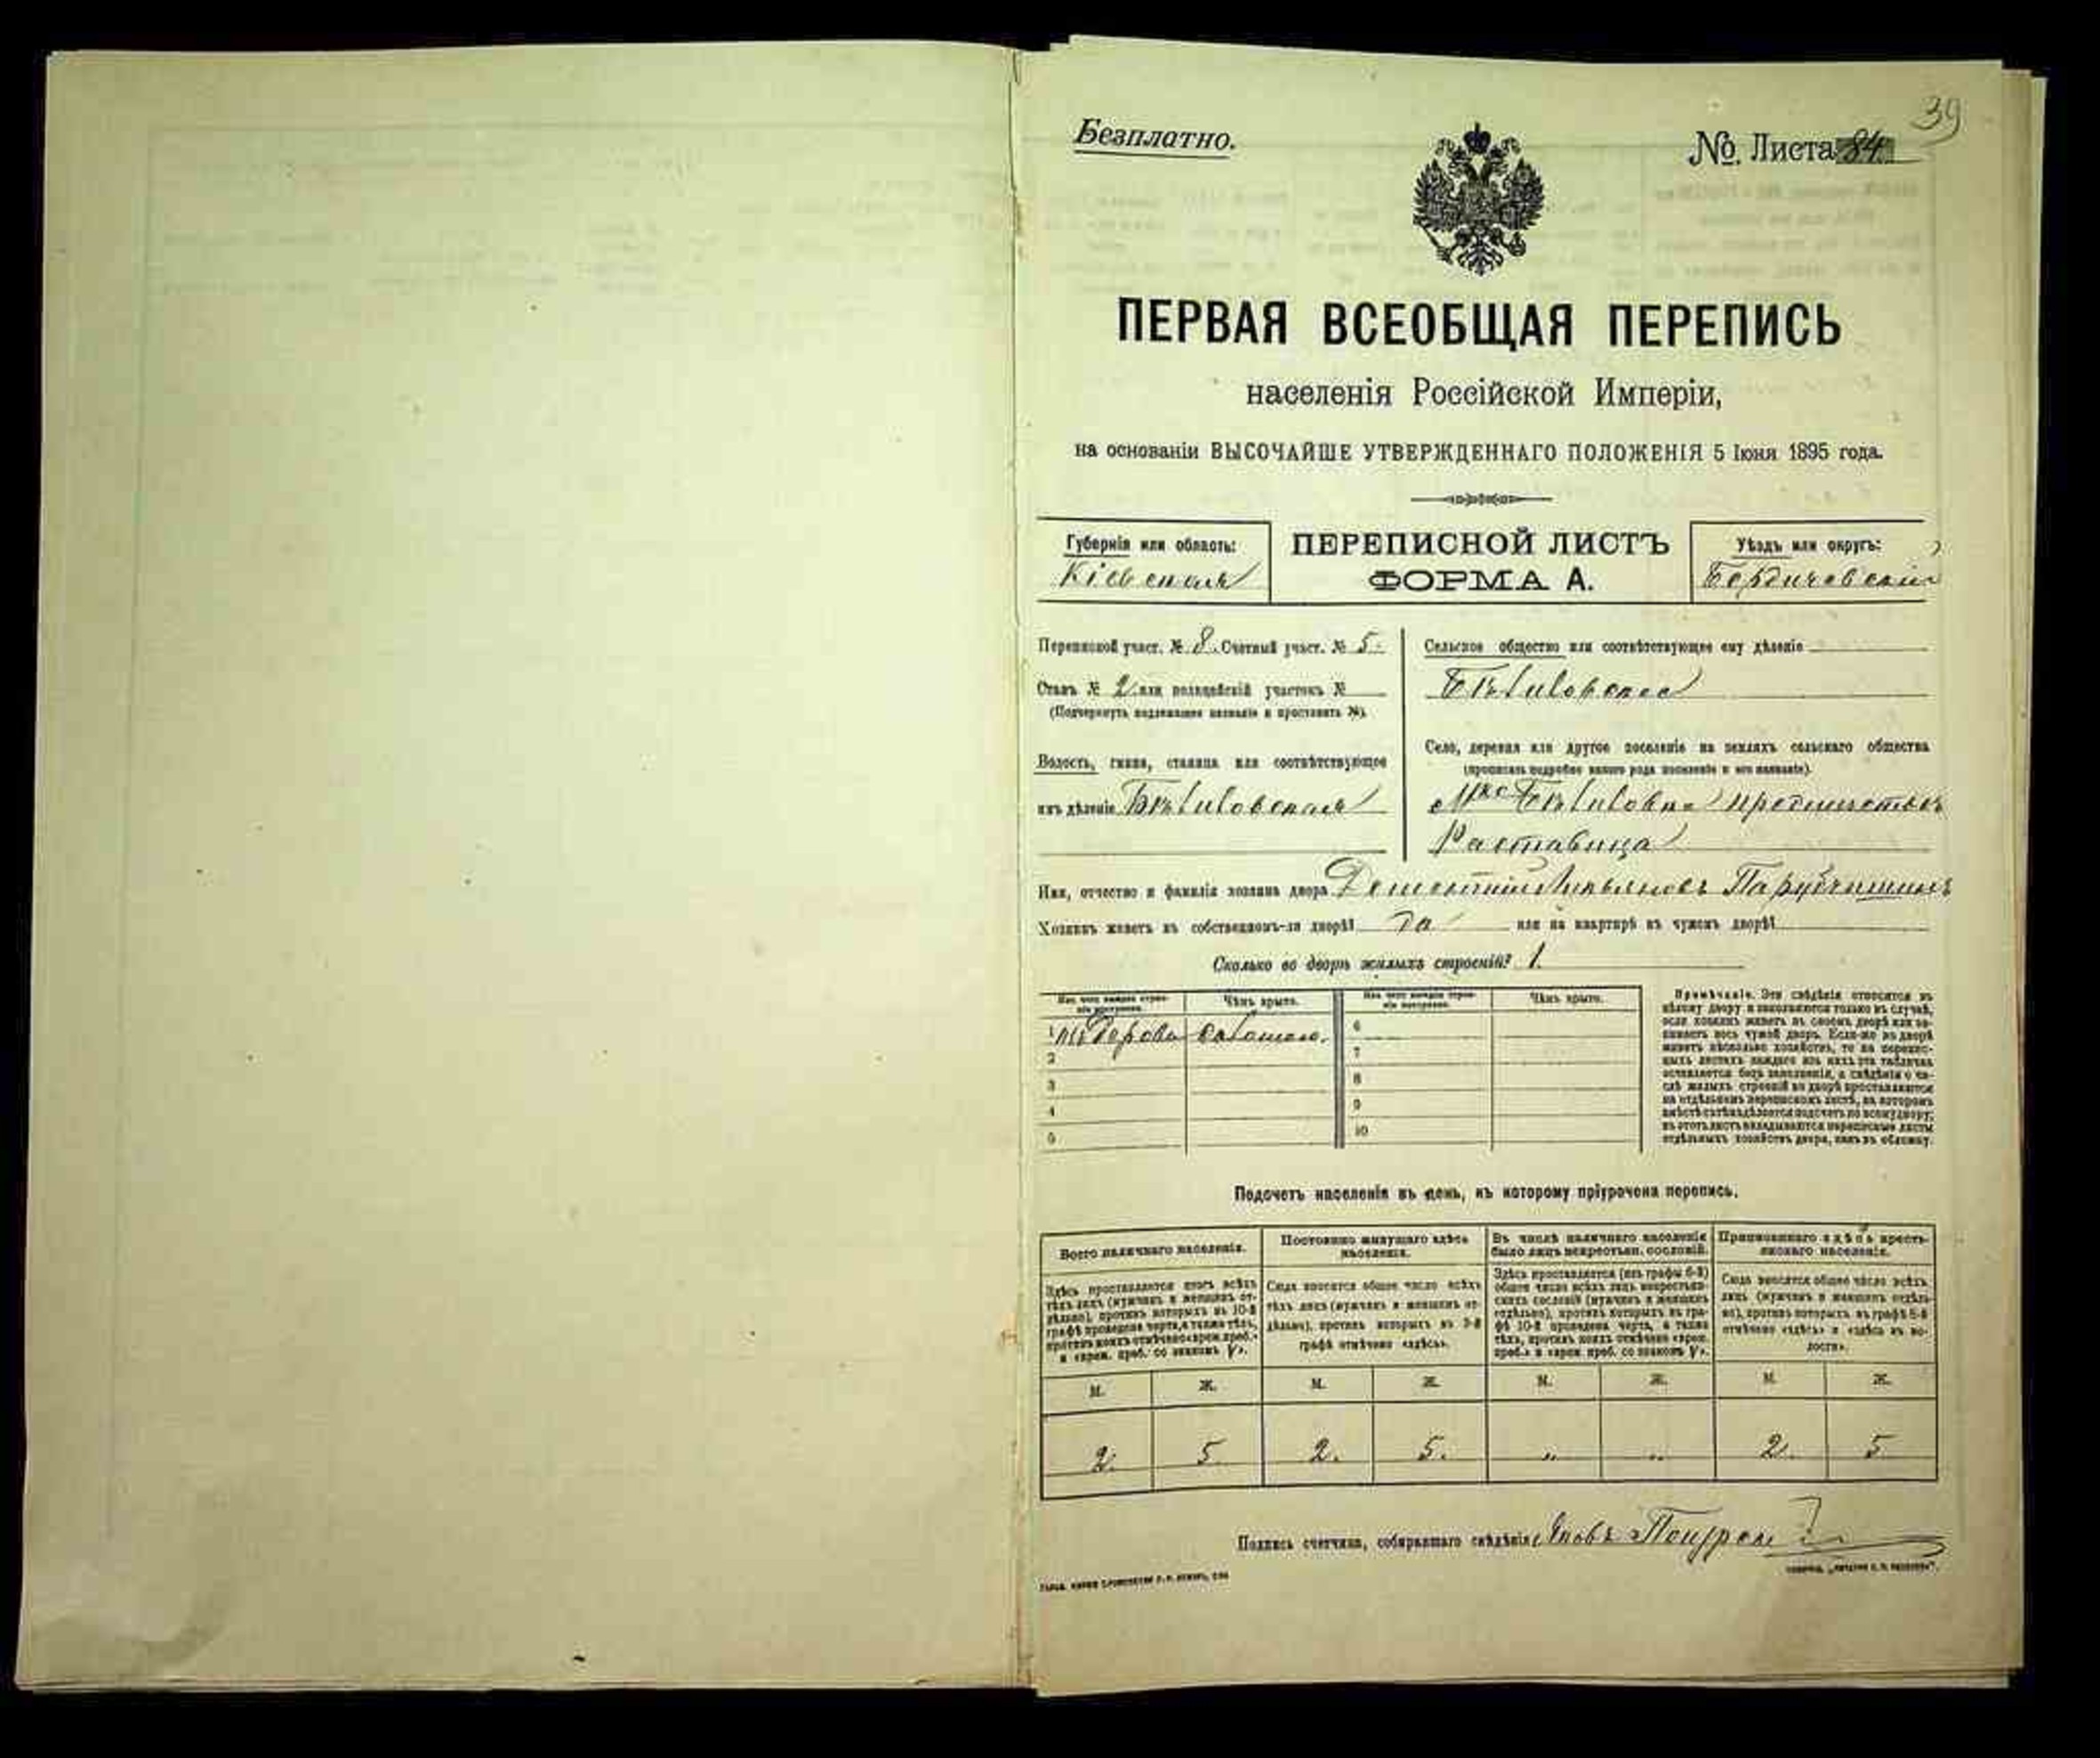 39
Безплатно.
№ Листа 84
ПЕРВАЯ ВСЕОБЩАЯ ПЕРЕПИСЬ
населенія Россійской Имперіи,
на основаніи ВЫСОЧАЙШЕ УТВЕРЖДЕННАГО ПОЛОЖЕНІЯ 5 Іюня 1895 года.
Губернія или область:
Кіевская
ПЕРЕПИСНОЙ ЛИСТЪ
ФОРМА А.
Уѣздъ или округъ:
Бердичевскій
Переписной участ. № 8. Счетный участ. № 5.
Станъ № 2 или полицейскій участокъ №
(Подчеркнуть надлежащее названіе и проставить №).
Волость, гмина, станица или соотвѣтствующее
имъ дѣленіе Бѣлиловская
Сельское общество или соотвѣтствующее ему дѣленіе
Бѣлиловское
Село, деревня или другое поселеніе на земляхъ сельскаго общества
(прописать подробно какого рода поселеніе и его названіе).
Мко Бѣлиловка предмѣстье
Раставица
Имя, отчество и фамилія хозяина двора Лукьяновъ
Хозяинъ живетъ въ собственномъ-ли дворѣ? да или на квартирѣ въ чужомъ дворѣ?
Сколько во дворѣ жилыхъ строеній? 1.
Изъ чего каждое строеніе построено.
Чѣмъ крыто.
Изъ чего каждое строеніе построено.
Чѣмъ крыто.
1 изъ дерева соломою.
2
3
4
5
6
7
8
9
10
Примѣчаніе. Эти свѣдѣнія относятся къ
цѣлому двору и заполняются только въ случаѣ,
если хозяинъ живетъ въ своемъ дворѣ или занимаетъ
весь чужой дворъ. Если-же во дворѣ
живетъ нѣсколько хозяйствъ, то на переписныхъ
листахъ каждаго изъ нихъ эта табличка
оставляется безъ заполненія, а свѣдѣнія о числѣ
жилыхъ строеній во дворѣ проставляются
на отдѣльномъ переписномъ листѣ, на которомъ
вмѣстѣ съ тѣмъ дѣлается подсчетъ по всему двору;
въ этотъ листъ вкладываются переписные листы
отдѣльныхъ хозяйствъ двора, какъ въ обложку.
Подсчетъ населенія въ день, къ которому пріурочена перепись.
Всего наличнаго населенія.
Постоянно живущаго здѣсь населенія.
Въ числѣ наличнаго населенія было лицъ некрестьян. сословій.
Приписаннаго здѣсь крестьянскаго населенія.
Здѣсь проставляется итогъ всѣхъ
тѣхъ лицъ (мужчинъ и женщинъ отдѣльно),
противъ которыхъ въ 10-й
графѣ проведена черта, а также тѣхъ,
противъ коихъ отмѣчено «врем. преб.»
и «врем. преб. со знакомъ V».
Сюда вносится общее число всѣхъ
тѣхъ лицъ (мужчинъ и женщинъ отдѣльно),
противъ которыхъ въ 9-й
графѣ отмѣчено «здѣсь».
Здѣсь проставляется (изъ графы 6-й)
общее число всѣхъ лицъ некрестьянскихъ
сословій (мужчинъ и женщинъ
отдѣльно), противъ которыхъ въ графѣ
10-й проведена черта, а также
тѣхъ, противъ коихъ отмѣчено «врем.
преб.» и «врем. преб. со знакомъ V».
Сюда вносится общее число всѣхъ
лицъ (мужчинъ и женщинъ отдѣльно),
противъ которыхъ въ графѣ 8-й
отмѣчено «здѣсь» и «здѣсь въ волости».
М. Ж. М. Ж. М. Ж. М. Ж.
2. 5. 2. 5. „ „ 2. 5
Подпись счетчика, собиравшаго свѣдѣнія